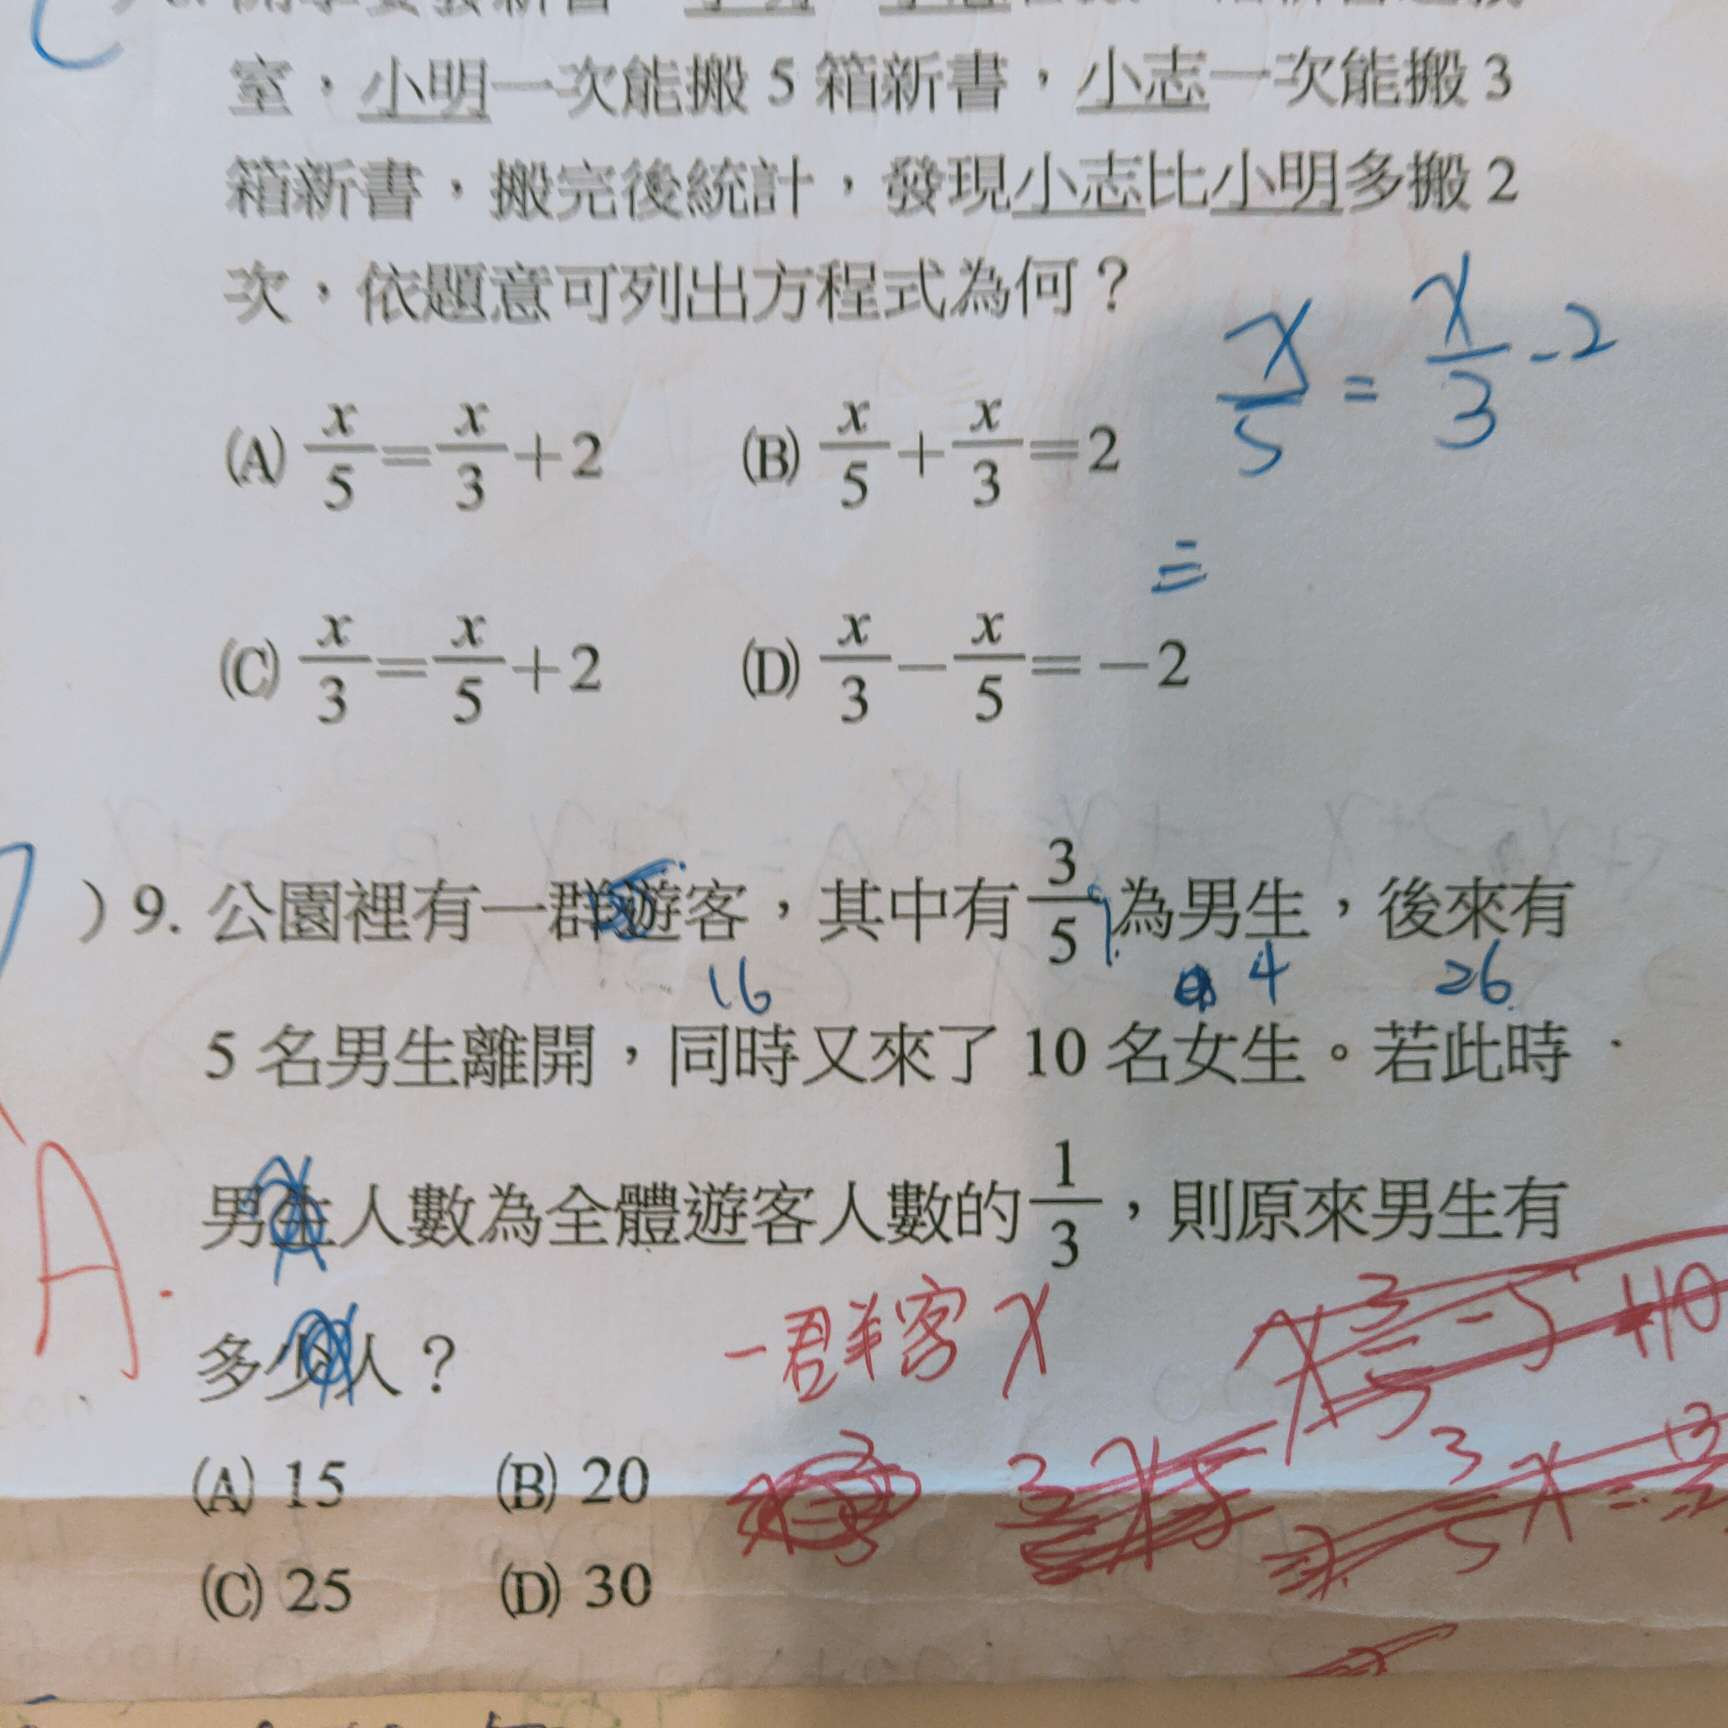 室，小明一次能搬 5 箱新書，小志一次能搬 3
箱新書，搬完後統計，發現小志比小明多搬 2
次，依題意可列出方程式為何？
x/5 = x/3 - 2
(A) x/5 = x/3 + 2 (B) x/5 + x/3 = 2
=
(C) x/3 = x/5 + 2 (D) x/3 - x/5 = -2
) 9. 公園裡有一群遊客，其中有 3/5 為男生，後來有
16 4 26
5 名男生離開，同時又來了 10 名女生。若此時
男生人數為全體遊客人數的 1/3，則原來男生有
A.
多少人？
一群客 x
(A) 15 (B) 20
(C) 25 (D) 30